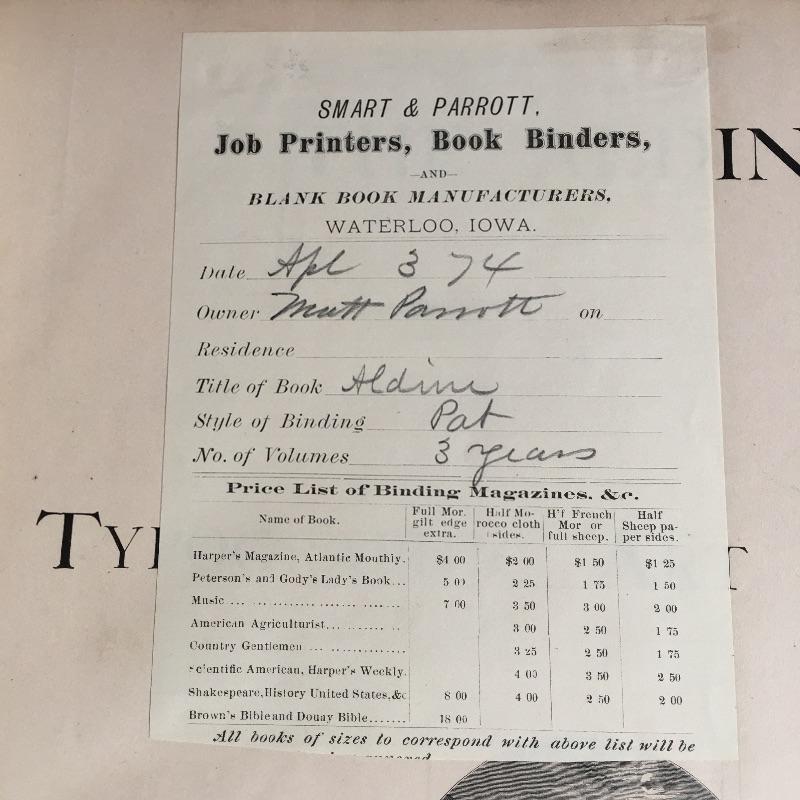 SMART & PARROTT,
Job Printers, Book Binders,
—AND—
BLANK BOOK MANUFACTURERS.
WATERLOO, IOWA.
IN
Date Apl 3 74
Owner Matt Parrott on
Residence
Title of Book Aldine
Style of Binding Pat
No. of Volumes 3 years
Price List of Binding Magazines, &c.
Name of Book. Full Mor. gilt edge extra. Half Morocco cloth sides. H'f French Mor or full sheep. Half Sheep paper sides.
TY
Harper's Magazine, Atlantic Mouthly. $4 00 $2 00 $1 50 $1 25
Peterson's and Gody's Lady's Book... 5 00 2 25 1 75 1 50
Music ... 7 00 3 50 3 00 2 00
American Agriculturist... 3 00 2 50 1 75
Country Gentlemen ... 3 25 2 50 1 75
Scientific American, Harper's Weekly. 4 00 3 50 2 50
Shakespeare, History United States, &c 8 00 4 00 2 50 2 00
Brown's Bible and Douay Bible....... 18 00
All books of sizes to correspond with above list will be